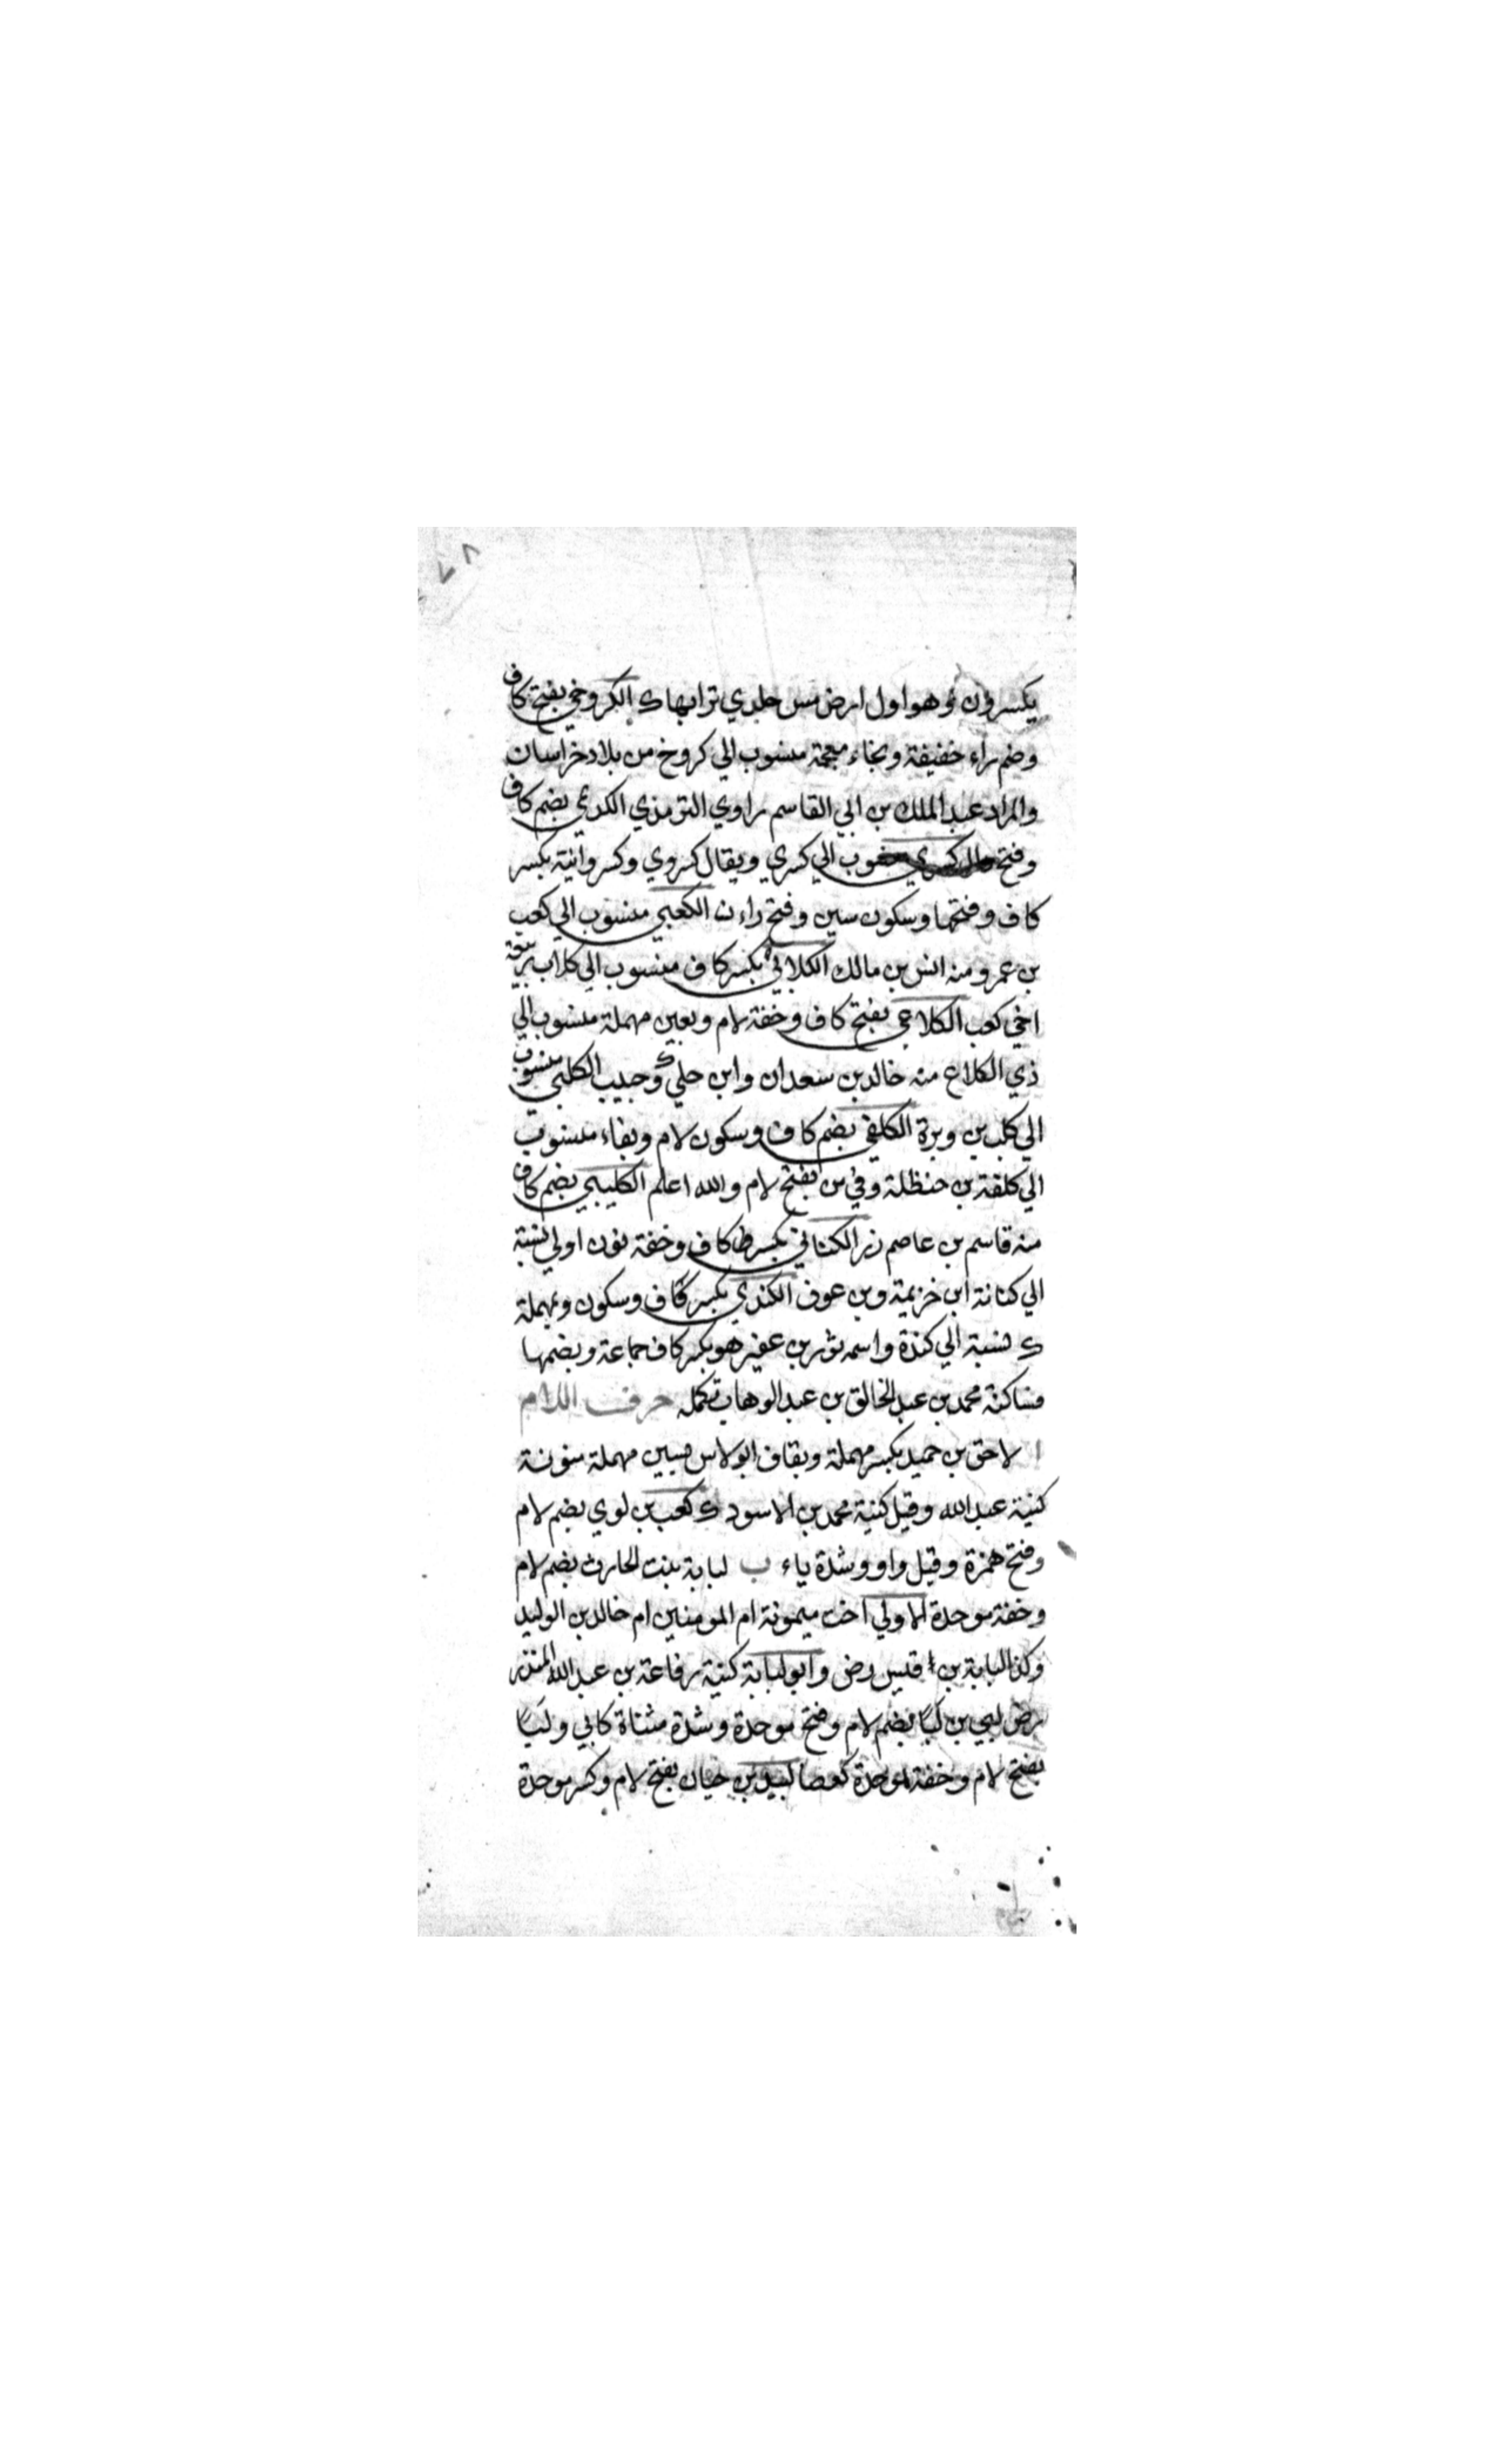 ٧٨
يكسرون و هو اول ارض مس جلدي ترابها ك الكروخي بفتح كاف
وضم راء خفيفة وبخاء معجمة منسوب الي كروخ من بلاد خراسان
والمراد عبد الملك بن ابي القاسم راوي الترمذي الكدعي بضم كاف
وفتح الي كسري ويقال كسروي وكسروانية بكسر
كاف وفتحها وسكون سين وفتح راء ن الكعبي منسوب الي كعب
بن عمرو منه انس بن مالك الكلابي بكسر كاف منسوب الي كلاب
اخي كعب الكلاعي بفتح كاف وخفة لام وبعين مهملة منسوب الي
ذي الكلاع منه خالد بن سعدان وابن حلي وحبيب الكلبي منسوب
الي كلب بن وبرة الكلفي بضم كاف وسكون لام وبفاء منسوب
الي كلفة بن حنظلة وفي س بفتح لام والله اعلم الكليبي بضم كاف
منه قاسم بن عاصم زر الكناني بكسر كاف وخفة نون اولي نسبة
الي كنانة ابن خزيمة وبن عوف الكندي بكسر كاف وسكون وبمهملة
ك نسبة الي كندة واسمه ثور بن عفير هو بكسر كاف جماعة وبضمها
مساكنة محمد بن عبد الخالق بن عبد الوهاب تكمله حرف اللام
ا لاحق بن حميد بكسر مهملة وبقاف ابو لاس بسين مهملة منونة
كنية عبد الله وقيل كنية محمد بن الاسود ك كعب بن لوي بضم لام
وفتح همزة وقيل واو وشدة ياء ب لبابة بنت الحارث بضم لام
وخفة موحدة الاولي اخت ميمونة ام المومنين ام خالد بن الوليد
وكذا لبابة بن قيس رض وابو لبابة كنية رفاعة بن عبد الله المنذر
رض لبي بن لبا بضم لام وفتح موحدة وشدة مثناة كابي ولبا
بفتح لام وخفة موحدة كعصا لبيد بن حيان بفتح لام وكسر موحدة